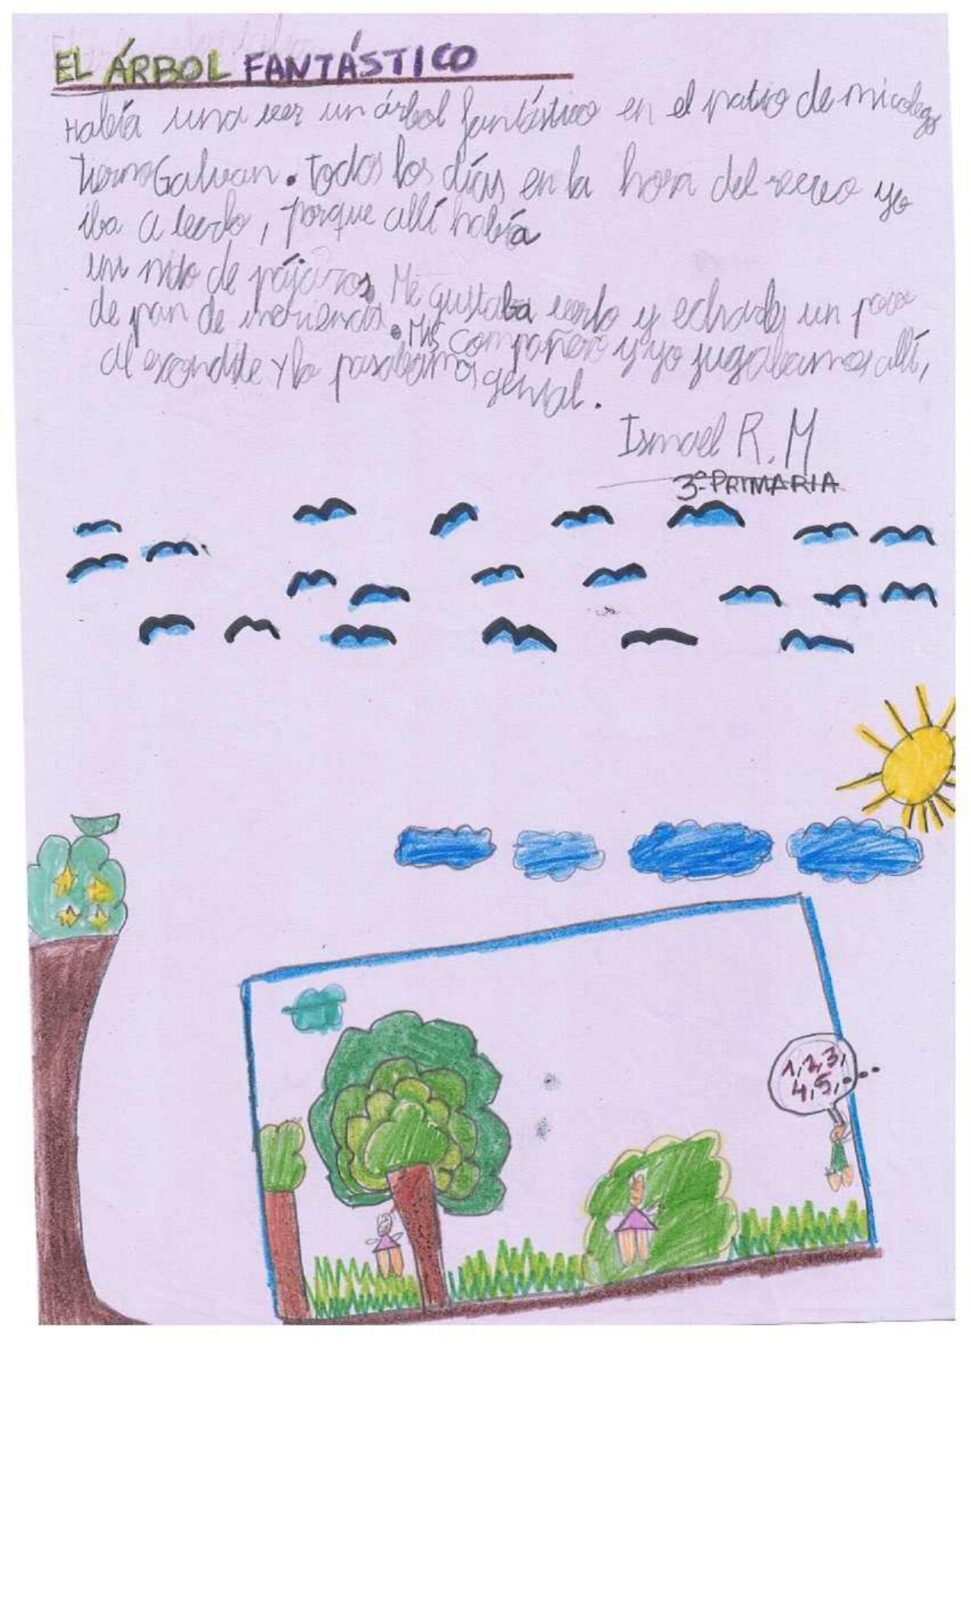 EL ÁRBOL FANTÁSTICO
Había una vez un árbol fantástico en el patio de mi colegio
Tierno Galvan. Todos los días en la hora del recreo yo
iba a verlo, porque allí había
un nido de pájaros. Me gustaba verlo y echarles un poco
de pan de mi merienda. Mis compañeros y yo jugabamos allí,
al escondite y lo pasabamos genial.
Ismael R. M
3º PRIMARIA
1, 2, 3,
4, 5, ...